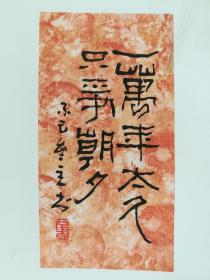 一萬年太久
只爭朝夕